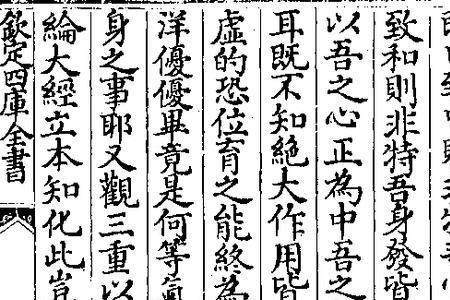 致和則非特吾身發皆
以吾之心正為中吾之
耳既不知絶大作用皆
虚的恐位育之能終為
洋優優畢竟是何等氣
身之事耶又觀三重以
綸大經立本知化此豈
欽定四庫全書